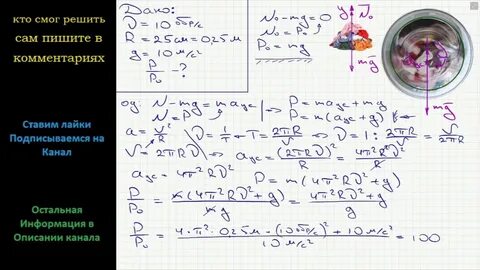 кто смог решить
сам пишите в
комментариях
Ставим лайки
Подписываемся на
Канал
Остальная
Информация в
Описании канала
Дано:
ν = 10 об/с
R = 25см = 0.25м
g = 10 м/с²
P/P₀ - ?
N₀ - mg = 0
N₀ = P₀
P₀ = mg
y N₀
mg
y
mg
од: N - mg = maцс
N = P
P = maцс + mg
P = m(aцс + g)
a = V²/R
ν = 1/T
T = 2πR/V
ν = 1 : 2πR/V = V/2πR
V = 2πRν
aцс = (2πRν)²/R = 4π²R²ν²/R
aцс = 4π²Rν²
P = m(4π²Rν² + g)
P/P₀ = m(4π²Rν² + g)/mg = 4π²Rν² + g/g
P/P₀ = 4·π²·0.25м·(10 об/с)² + 10 м/с²/10 м/с² = 100